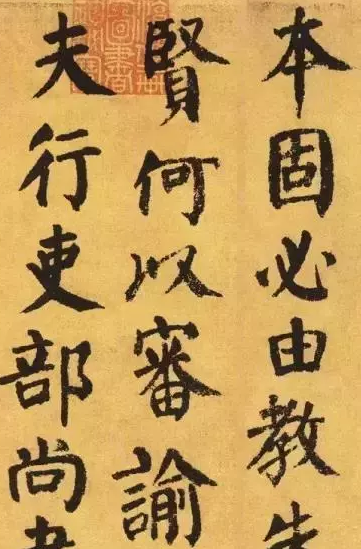 本固必由教
賢何以審諭
夫行吏部尚